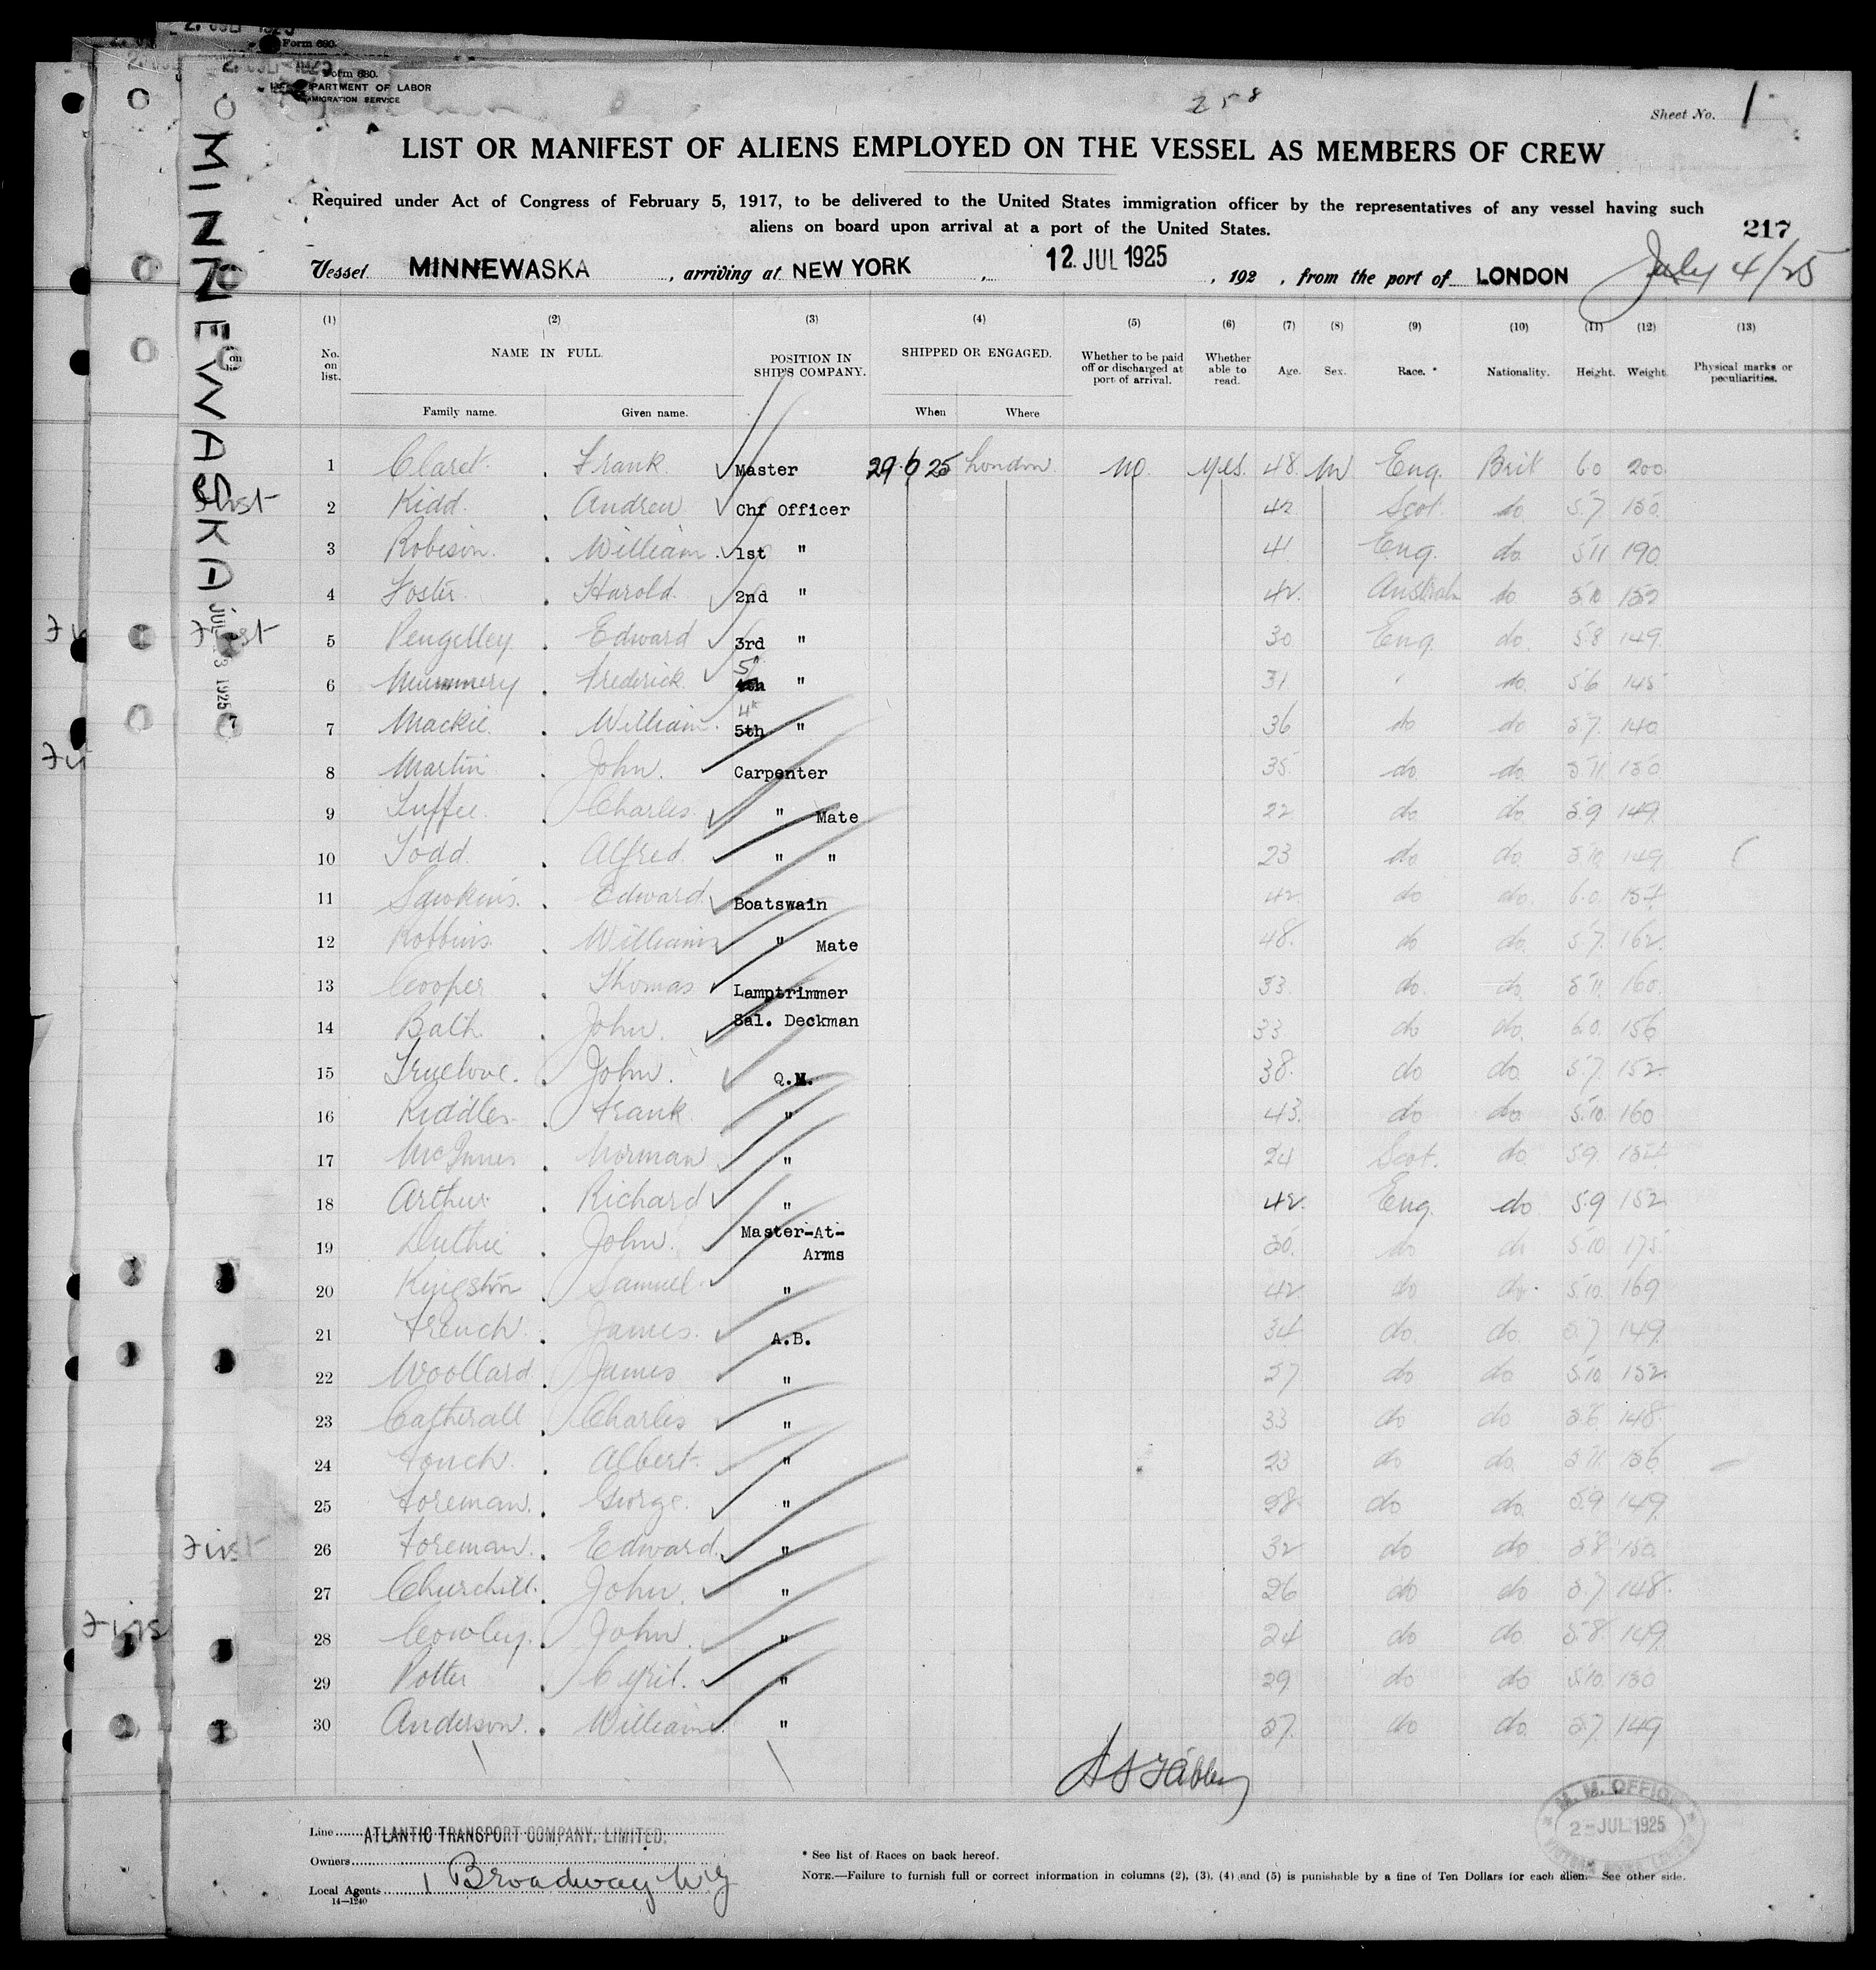 Form 680.
DEPARTMENT OF LABOR
IMMIGRATION SERVICE
258
Sheet No. 1
LIST OR MANIFEST OF ALIENS EMPLOYED ON THE VESSEL AS MEMBERS OF CREW
Required under Act of Congress of February 5, 1917, to be delivered to the United States immigration officer by the representatives of any vessel having such
aliens on board upon arrival at a port of the United States.
217
Vessel MINNEWASKA, arriving at NEW YORK, 12 JUL 1925, 192 , from the port of LONDON July 4/25
MINNEWASKA
(1) (2) (3) (4) (5) (6) (7) (8) (9) (10) (11) (12) (13)
No. on list. NAME IN FULL. POSITION IN SHIP'S COMPANY. SHIPPED OR ENGAGED. Whether to be paid off or discharged at port of arrival. Whether able to read. Age. Sex. Race. * Nationality. Height. Weight. Physical marks or peculiarities.
Family name. Given name. When Where
1 Claret. Frank Master 29.6 25 London no. yes. 48. M Eng. Brit 6 0 200.
2 Kidd. Andrew Chf Officer 42 Scot. do 5.7. 150.
3 Robison. William 1st " 41 Eng. do. 5 11 190.
4 Foster. Harold. 2nd " 42. Austral do 5.10 152
5 Pengelley Edward 3rd " 30 Eng. do. 5.8 149.
6 Mummery Frederick. 4th 5" " 31 " do. 5.6 145
7 Mackie. William. 5th 4th " 36 do do 5.7. 140.
8 Martin John. Carpenter 35. do. do. 5 11. 150
9 Luffee. Charles. " Mate 22 do do. 5.9 149.
10 Todd. Alfred. " " 23 do do. 5.10. 149.
11 Sawkins. Edward. Boatswain 42. do do. 6.0. 154
12 Robbins. William " Mate 48. do do. 5.7. 162.
13 Cooper Thomas Lamptrimmer 33. do. do. 5 11. 160.
14 Bath. John. Sal. Deckman 33 do do. 6.0. 156
15 Truelove. John. Q.M. 38. do do. 5.7. 152.
16 Riddles. Frank. " 43. do do. 5.10. 160
17 McInnes Norman " 24 Scot. do 5.9 154
18 Arthur. Richard " 42. Eng. do 5.9 152
19 Duthie John. Master-At-Arms 30. do do 5.10 175
20 Kingston Samuel. " 42. do do. 5.10. 169
21 French. James. A.B. 34 do do. 5.7 149.
22 Woollard James " 37 do do 5.10. 152.
23 Catherall Charles " 33 do do 5.6. 148.
24 Albert. " 23 do do. 5 11. 156
25 Foreman. George. " 28. do do. 5.9 149.
26 Foreman. Edward. " 32 do do 5.8. 150.
27 Churchill. John. " 26 do do 5.7 148.
28 Cowley. John. " 24 do do. 5.8. 149.
29 Potter Cyril. " 29 do do 5.10. 150
30 Anderson. William. " 37. do do. 5.7 149
First
Line ATLANTIC TRANSPORT COMPANY. LIMITED.
Owners
Local Agents 1 Broadway N.Y
14—1240
* See list of Races on back hereof.
NOTE.—Failure to furnish full or correct information in columns (2), (3), (4) and (5) is punishable by a fine of Ten Dollars for each alien. See other side.
M. M. OFFICE
2-JUL 1925